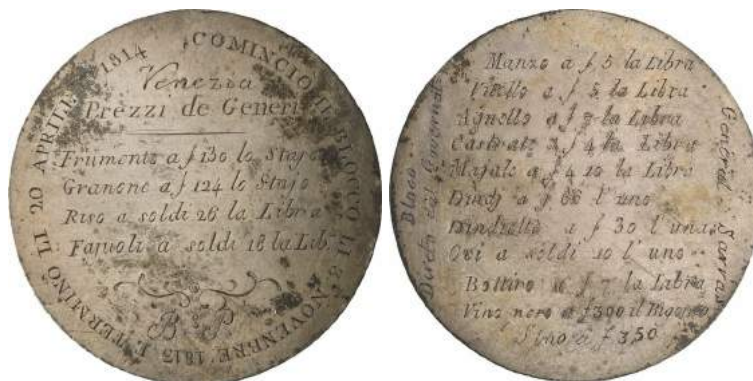 COMINCIO IL BLOCCO LI 3 NOVENERE 1813 E TERMINO LI 20 APRILE 1814
Venezia
Prezzi de Generi
Frumento a f 130 lo Stajo
Granone a f 124 lo Stajo
Riso a soldi 26 la Libra
Fajuoli a soldi 18 la Lib
B P
Bloco
Direto dal Governat
General Sarras
Manzo a f 5 la Libra
Vitello a f 5 la Libra
Agnello a f 3 la Libra
Castrato a f 4 la Libra
Majale a f 4 10 la Libra
a f 66 l'uno
Dindietto a f 30 l'una
Ovi a soldi 10 l'uno
Bottiro a f 7 la Libra
Vino nero a f 300 il
Sino a f 350